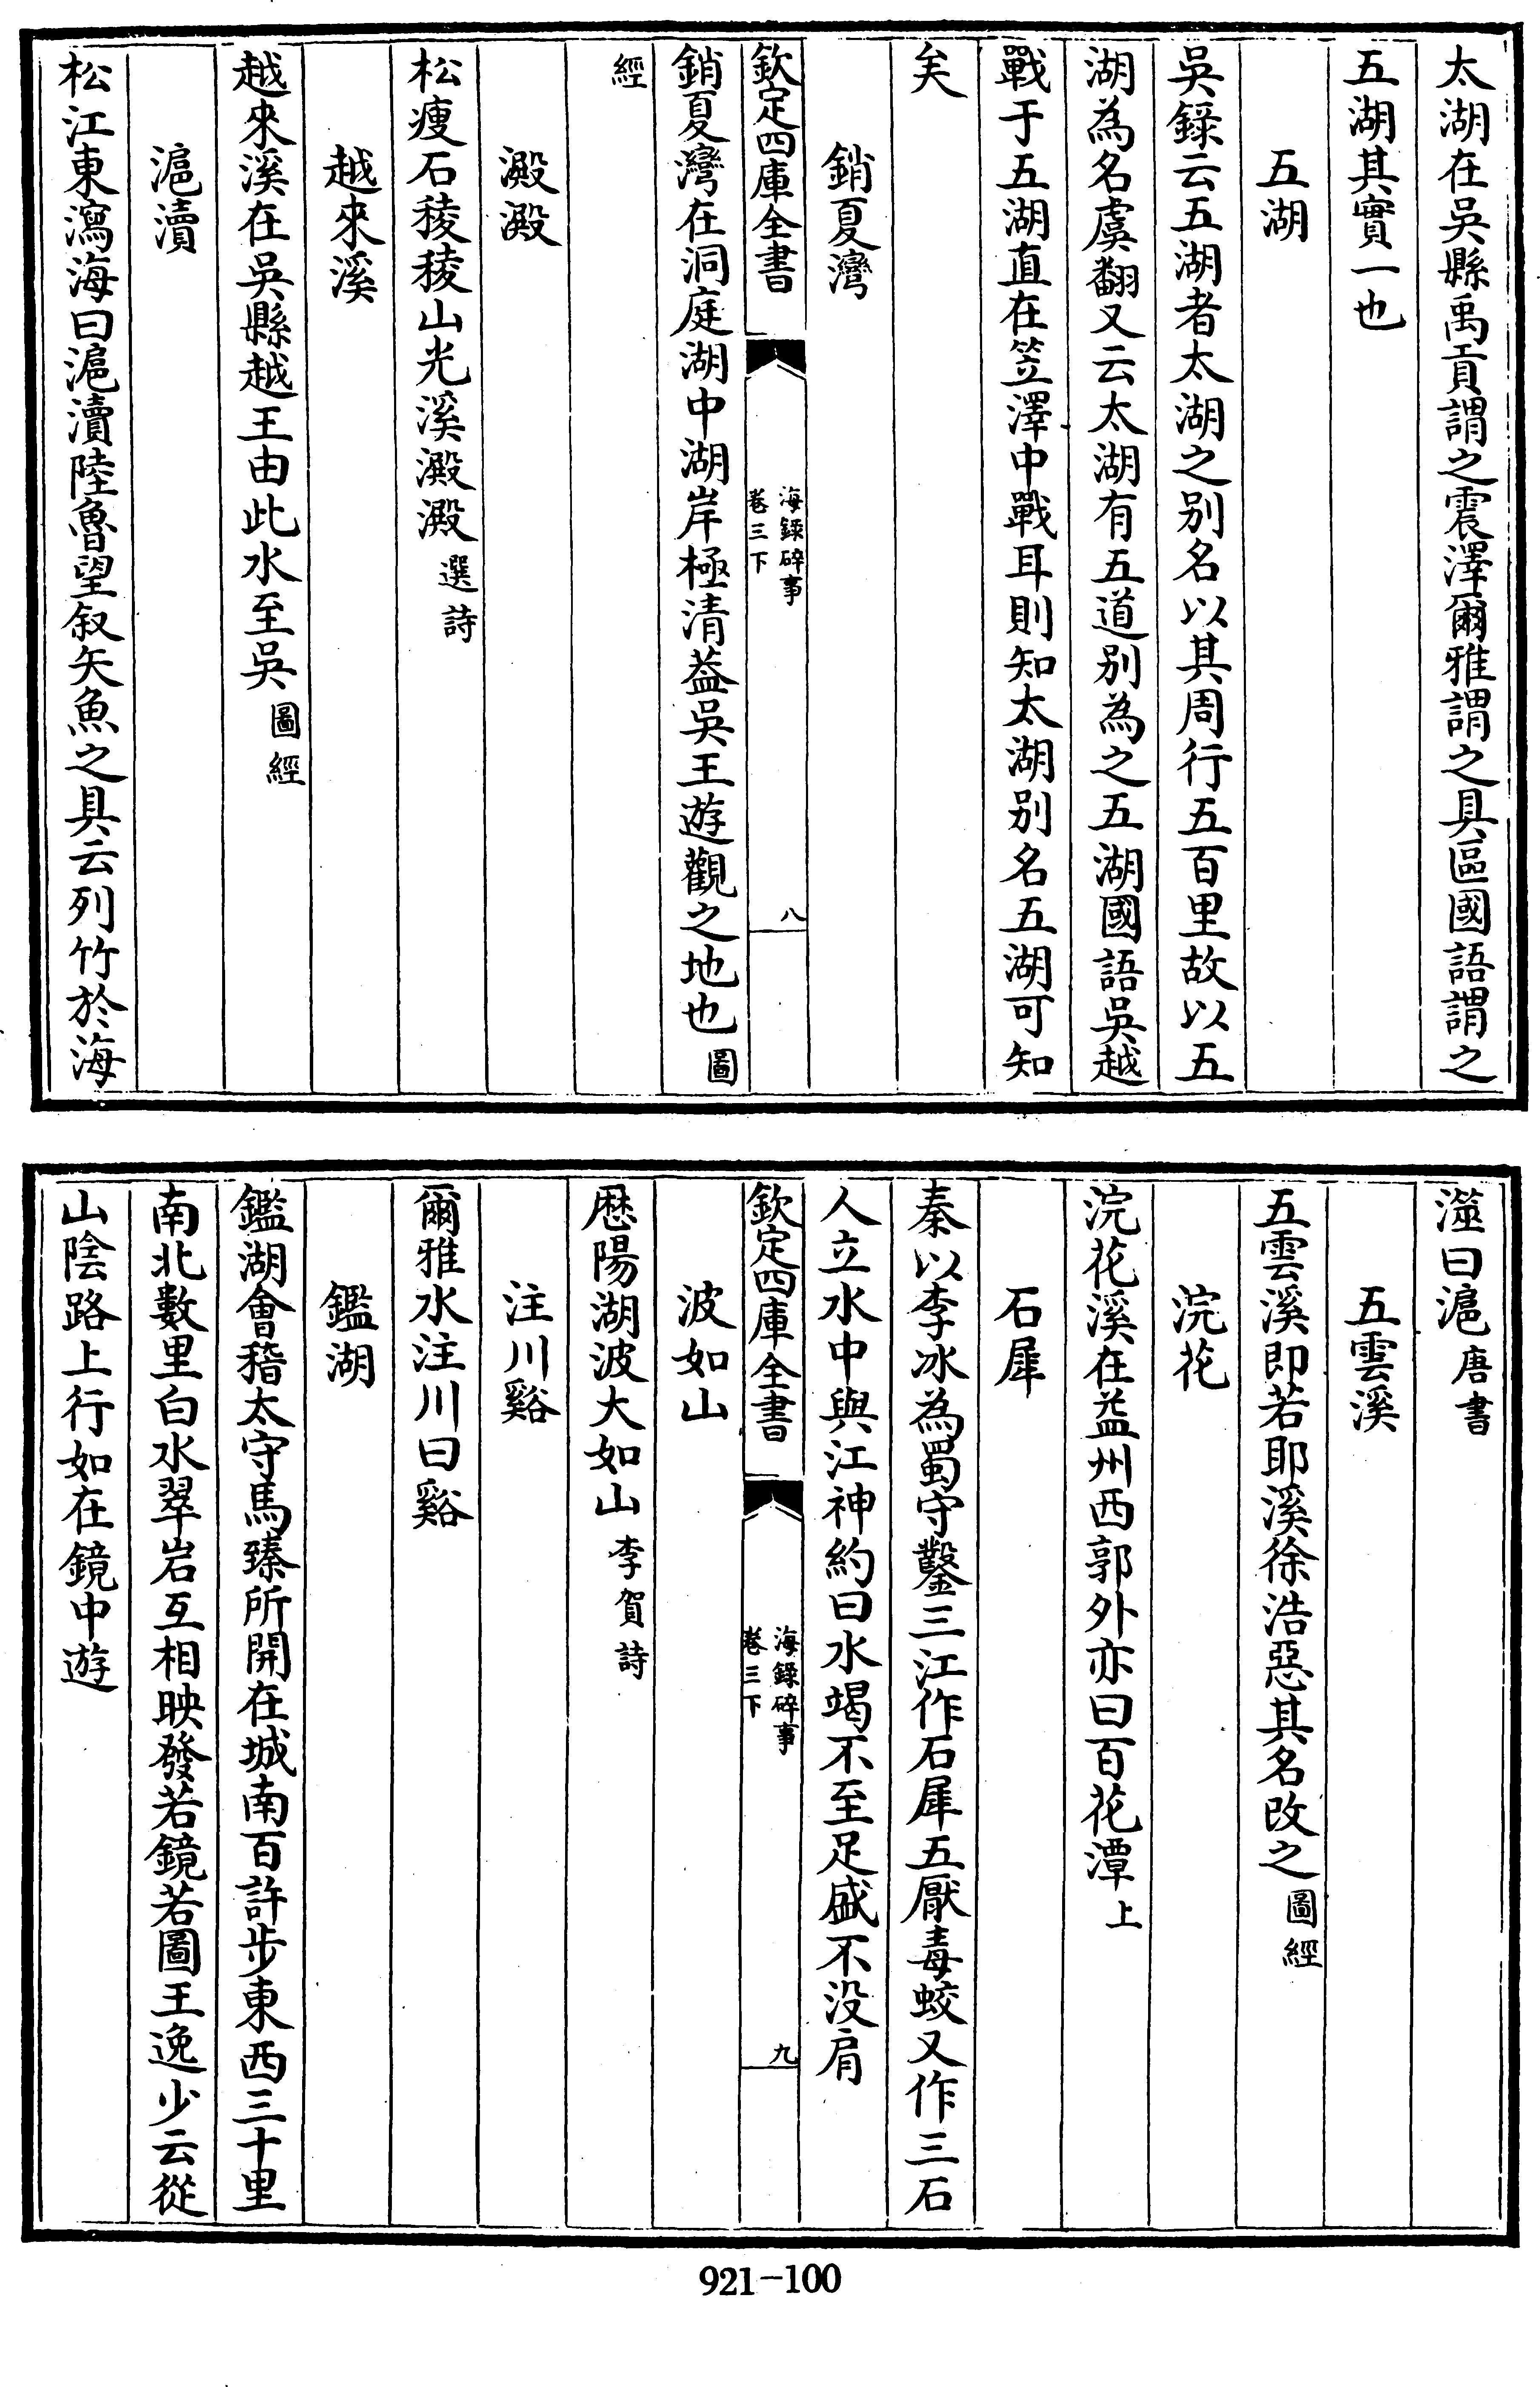 太湖在吳縣禹貢謂之震澤爾雅謂之具區國語謂之
五湖其實一也
五湖
吳錄云五湖者太湖之别名以其周行五百里故以五
湖為名虞翻又云太湖有五道别為之五湖國語吳越
戰于五湖直在笠澤中戰耳則知太湖别名五湖可知
矣
銷夏灣
欽定四庫全書
海錄碎事
卷三下
八
銷夏灣在洞庭湖中湖岸極清葢吳王遊觀之地也圖
經
澱澱
松瘦石稜稜山光溪澱澱選詩
越來溪
越來溪在吳縣越王由此水至吳圖經
滬瀆
松江東瀉海曰滬瀆陸魯望叙矢魚之具云列竹於海
澨曰滬唐書
五雲溪
五雲溪即若耶溪徐浩惡其名改之圖經
浣花
浣花溪在益州西郭外亦曰百花潭上
石犀
秦以李冰為蜀守鑿三江作石犀五厭毒蛟又作三石
人立水中與江神約曰水竭不至足盛不没肩
欽定四庫全書
海錄碎事
卷三下
九
波如山
歷陽湖波大如山李賀詩
注川谿
爾雅水注川曰谿
鑑湖
鑑湖會稽太守馬臻所開在城南百許步東西三十里
南北數里白水翠岩互相映發若鏡若圖王逸少云從
山陰路上行如在鏡中遊
921-100